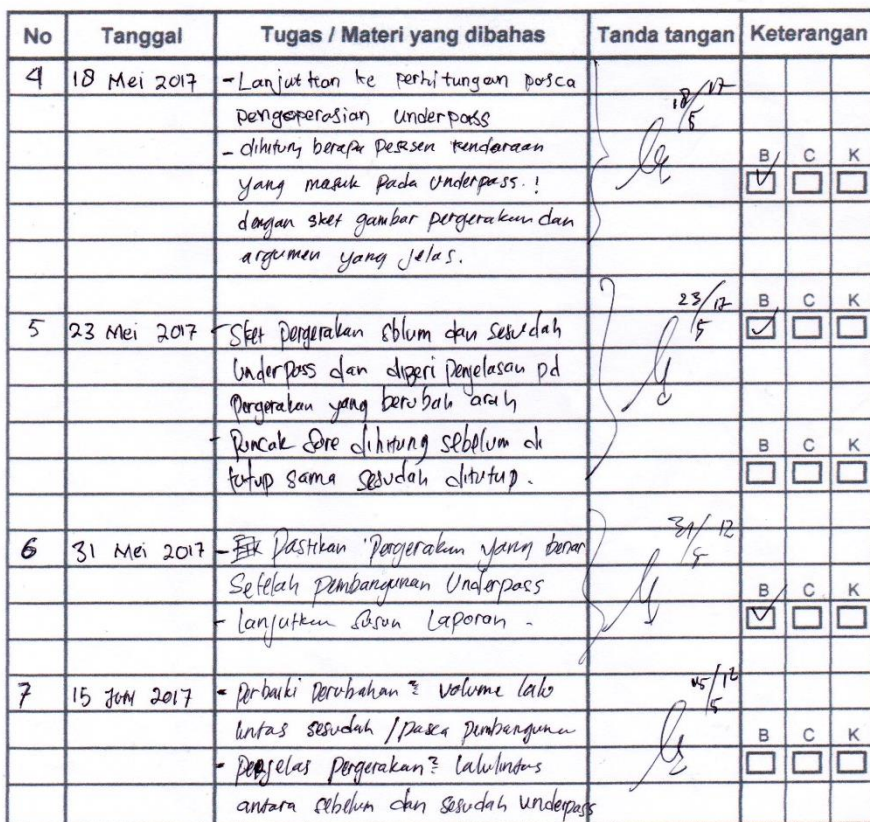 No Tanggal Tugas / Materi yang dibahas Tanda tangan Keterangan
4 18 Mei 2017 - Lanjutkan ke perhitungan pasca
pengoperasian underpass
18/5 17
- dihitung berapa persen kendaraan
B C K
yang masuk pada underpass. !
dengan sket gambar pergerakan dan
argumen yang jelas.
23/5 17 B C K
5 23 Mei 2017 - Sket pergerakan sblum dan sesudah
Underpass dan diberi penjelasan pd
Pergerakan yang berubah arah
- Puncak Sore dihitung sebelum di
B C K
tutup sama sesudah ditutup.
31/5 17
6 31 Mei 2017 - Pastikan Pergerakan yang benar
Setelah pembangunan Underpass
B C K
- Lanjutkan susun Laporan -
7 15 Juni 2017 - perbaiki perubahan2 volume lalu
lintas sesudah / pasca pembanguna
B C K
- Penjelas Pergerakan2 lalulintas
antara sebelum dan sesudah underpass